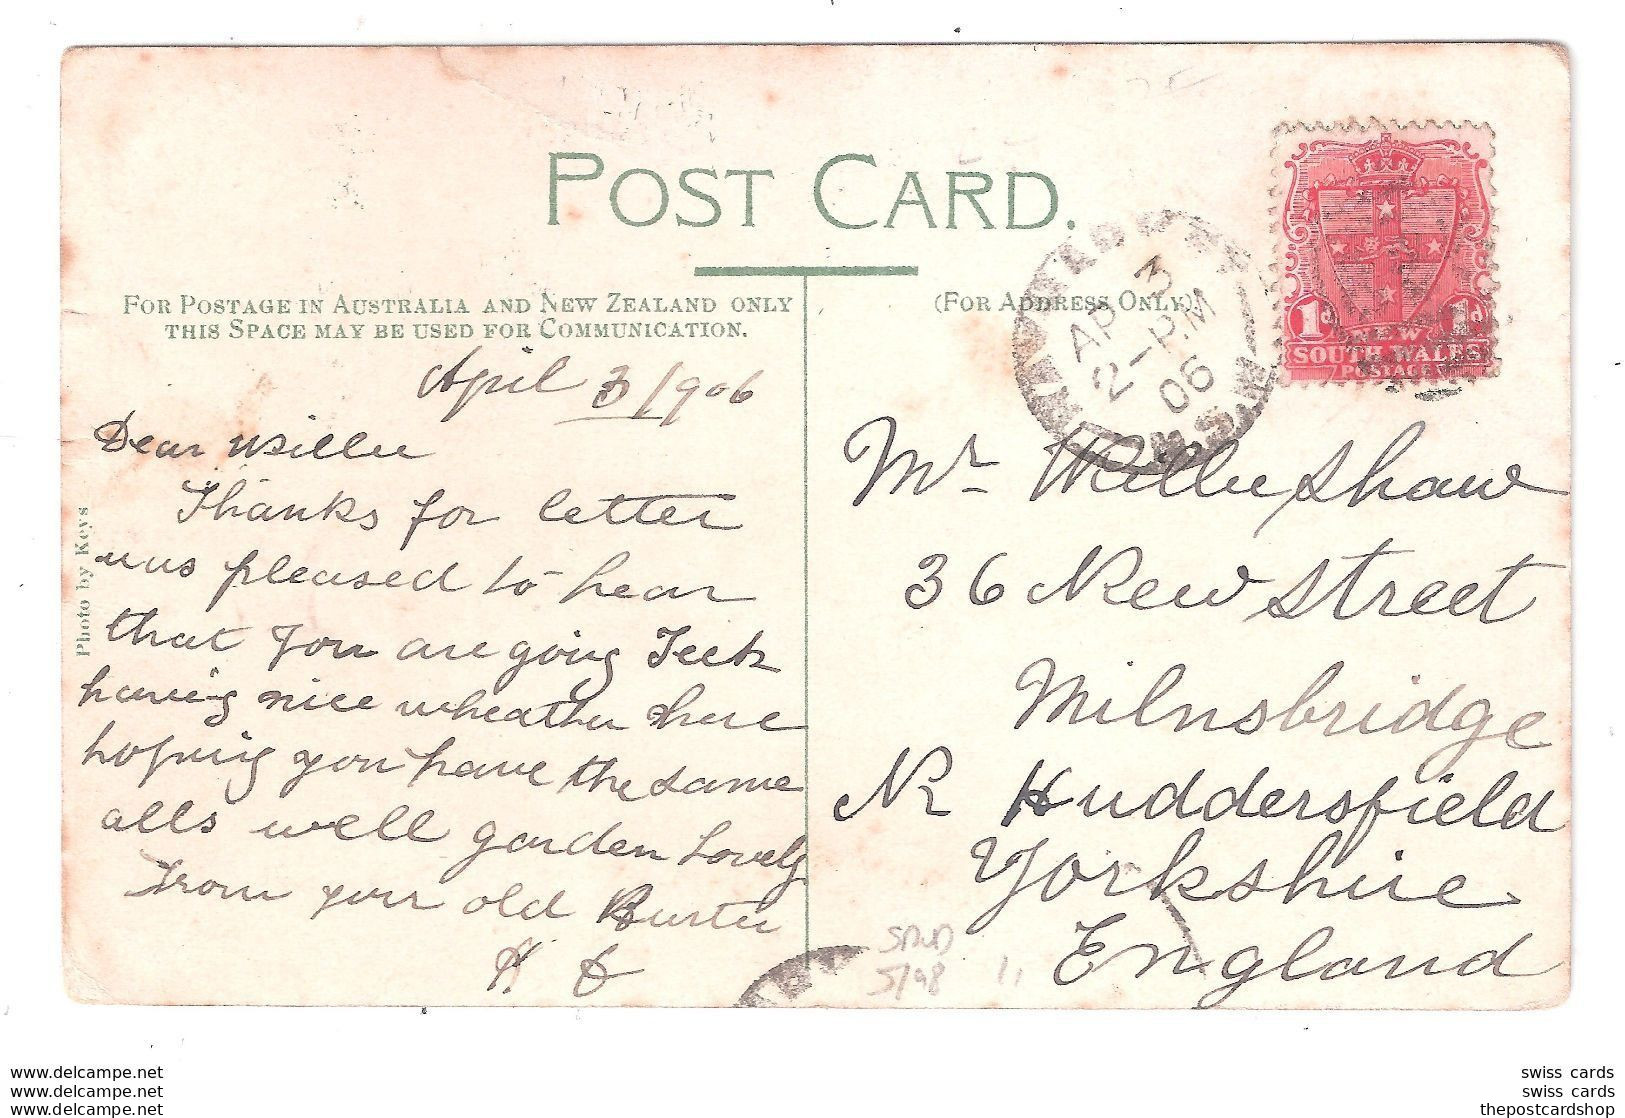 POST CARD.
FOR POSTAGE IN AUSTRALIA AND NEW ZEALAND ONLY
THIS SPACE MAY BE USED FOR COMMUNICATION.
(FOR ADDRESS ONLY)
AP 3
2-PM
06
N.S.W
1d
1d
NEW
SOUTH WALES
POSTAGE
April 3/1906
Dear Willie
Thanks for letter
was pleased to hear
that you are going
having nice wheather here
hoping you have the same
alls well garden Lovely
From your old
H
Photo by Keys
Mr Willie Shaw
36 New Street
Milnsbridge
Nr Huddersfield
Yorkshire
England
5/98
www.delcampe.net
www.delcampe.net
www.delcampe.net
swiss cards
swiss cards
thepostcardshop